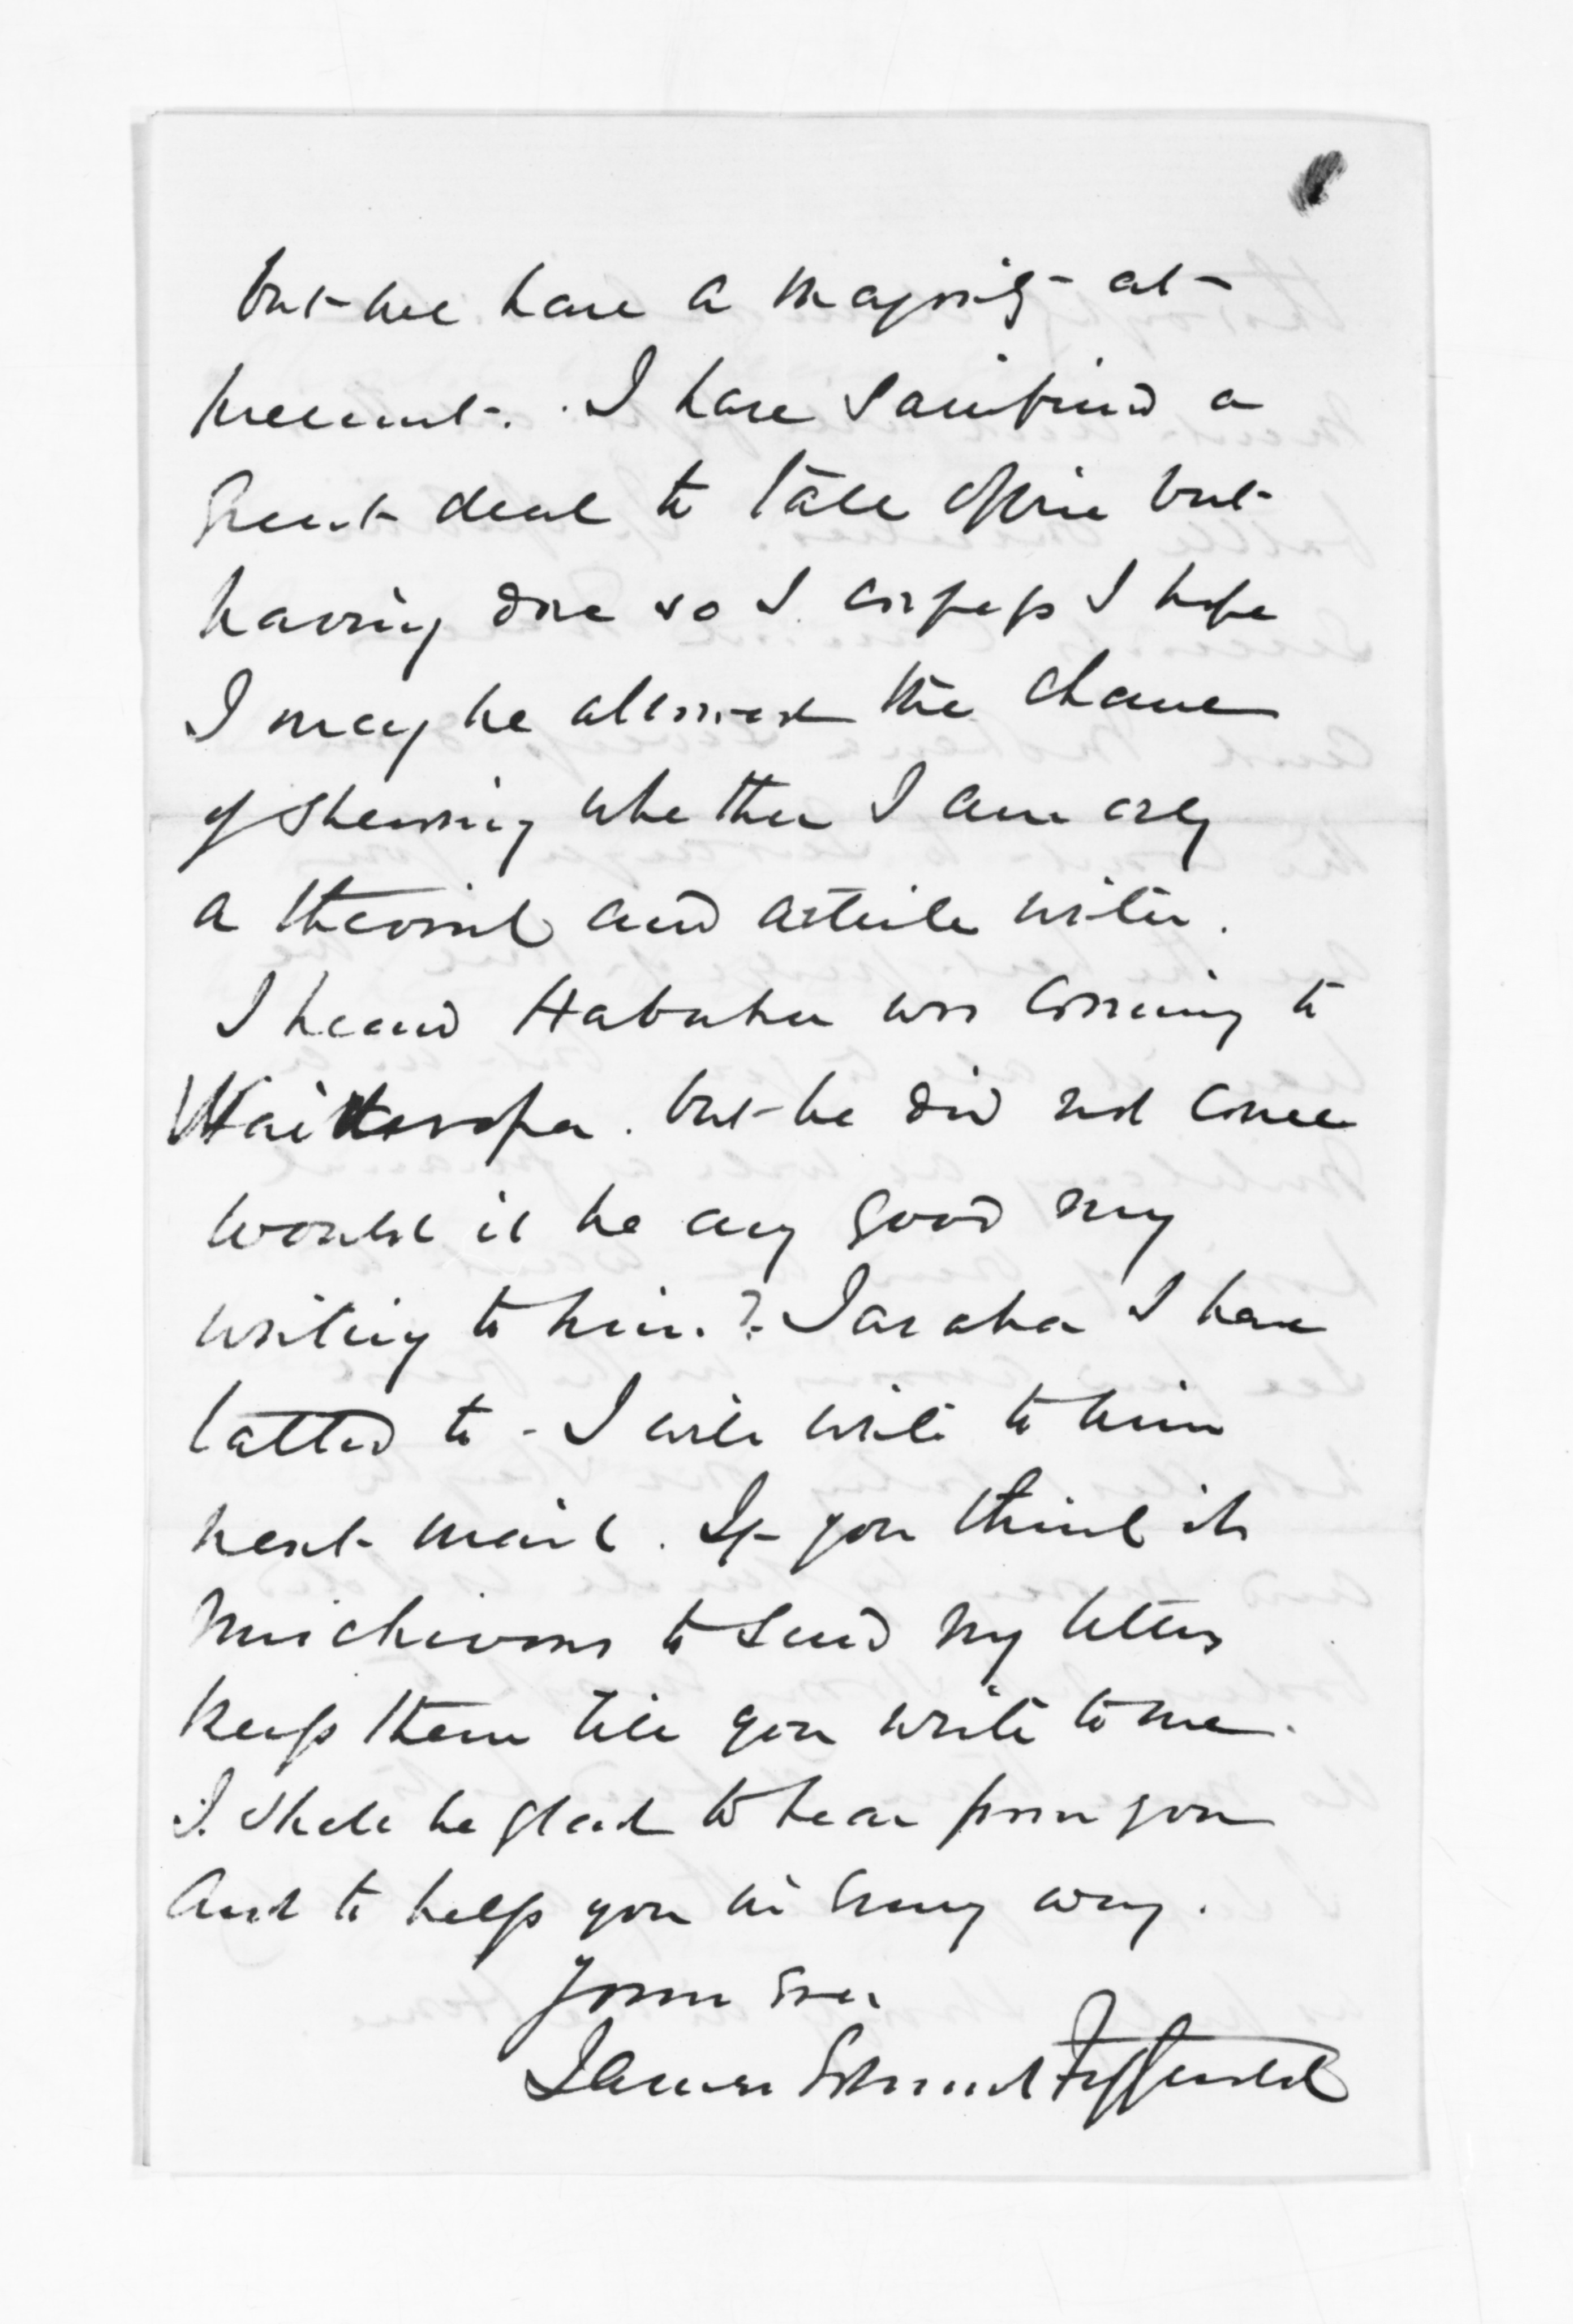 but we have a majority at
present. I have sacrificed a
great deal to take office but
having done so I confess I hope
I may be allowed the chance
of shewing whether I am only
a theorist and article writer.
I heard Habuku was coming to
but he did not come
would it be any good my
writing to him? Taraha I have
talked to - I will write to him
next mail. If you think it
mischievous to send my letters
keep them till you write to me.
I shall be glad to hear from you
And to help you in every way.
Yours ever
James Edward FitzGerald